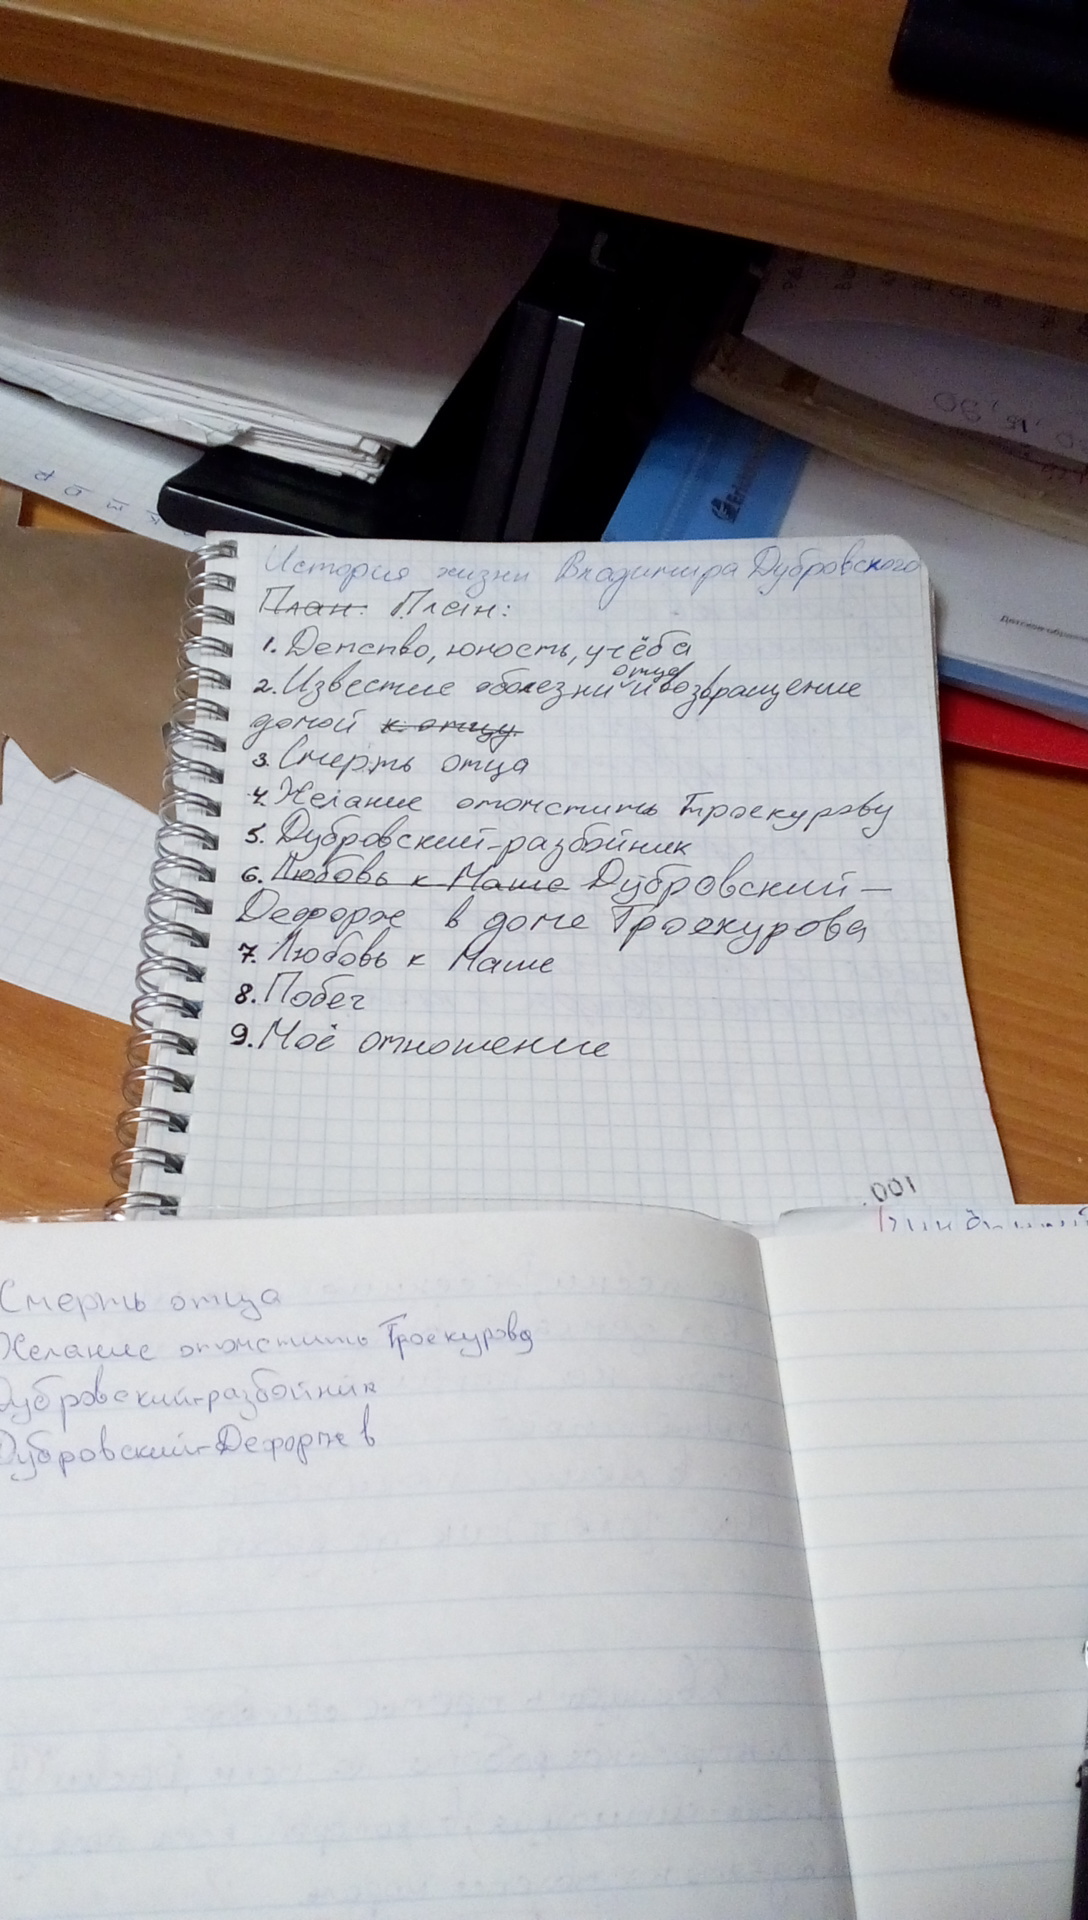 История жизни Владимира Дубровского
План: План:
1. Детство, юность, учёба
2. Известие о болезни отца и возвращение
домой к отцу.
3. Смерть отца
4. Желание отомстить Троекурову
5. Дубровский-разбойник
6. Любовь к Маше Дубровский –
Дефорж в доме Троекурова
7. Любовь к Маше
8. Побег
9. Моё отношение
001
Смерть отца
Желание отомстить
Дубровский-разбойник
Дубровский-Дефорж в